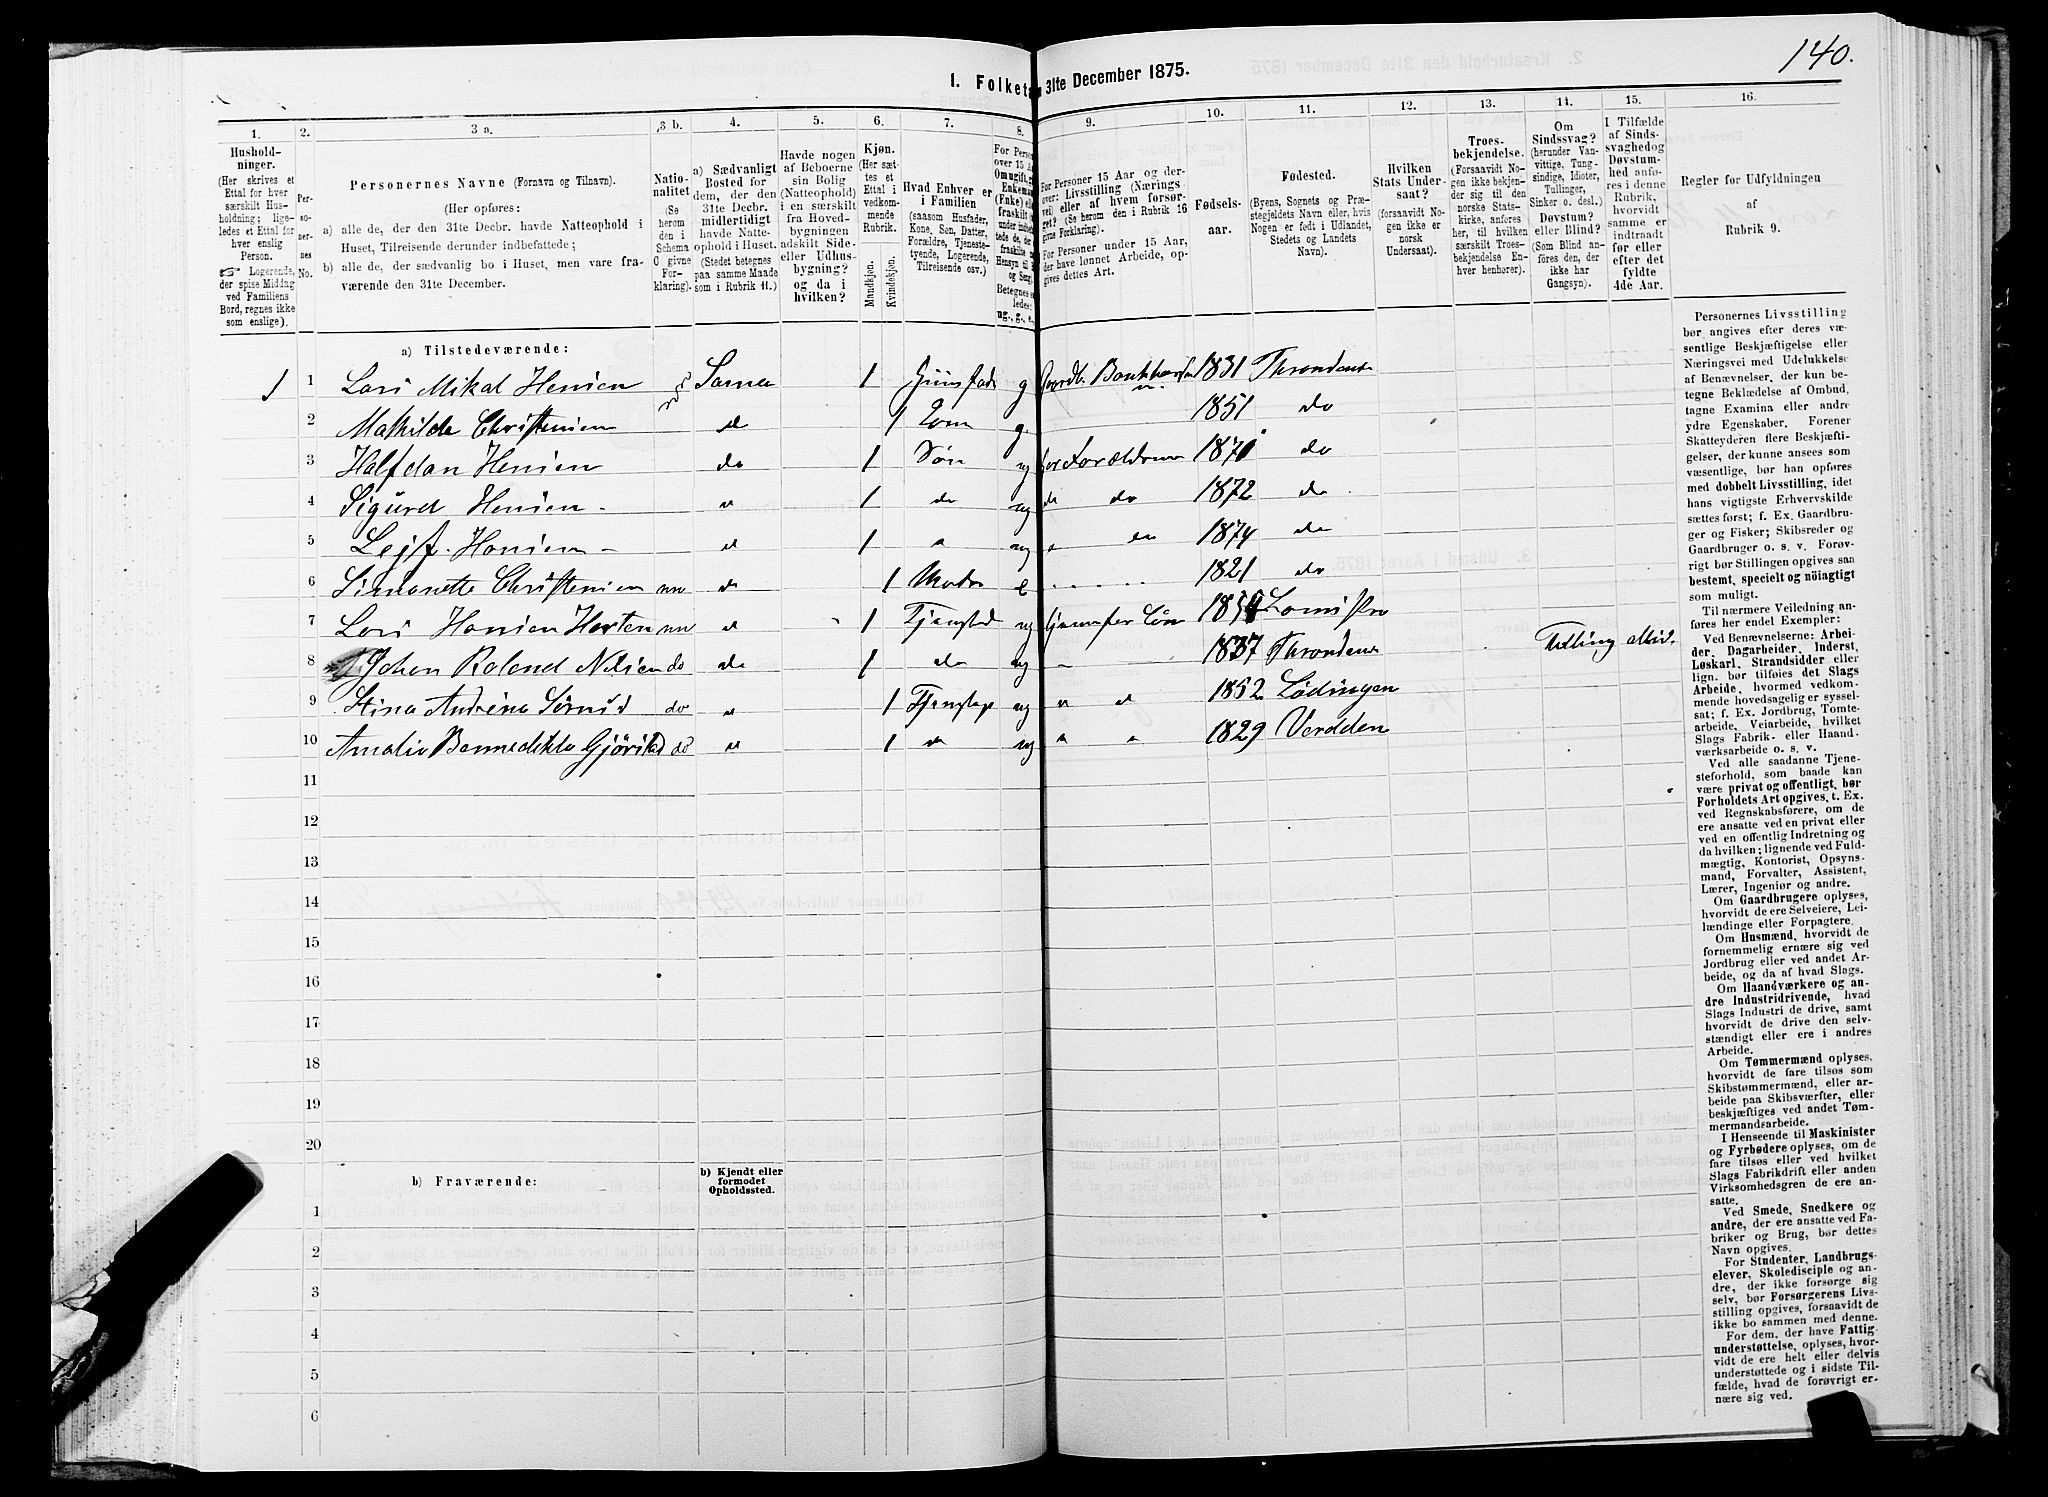 140.
I. Folketa 31te December 1875.
1. 2. 3 a. 3 b. 4. 5. 6. 7. 8. 9. 10. 11. 12. 13. 14. 15. 16.
Hushold-
ninger.
(Her skrives et
Ettal for hver
særskilt Hus-
holdning; lige-
ledes et Ettal for
hver enslig
Person.
☞ Logerende,
der spise Middag
ved Familiens
Bord, regnes ikke
som enslige).
Per-
so-
ner-
nes
No.
Personernes Navne (Fornavn og Tilnavn).
(Her opføres:
a) alle de, der den 31te Decbr. havde Natteophold i
Huset, Tilreisende derunder indbefattede;
b) alle de, der sædvanlig bo i Huset, men vare fra-
værende den 31te December.
Natio-
nalitet
(Se
herom
den i
Schema
C givne
For-
klaring).
a) Sædvanligt
Bosted for
dem, der den
31te Decbr.
midlertidigt
havde Natte-
ophold i Huset.
(Stedet betegnes
paa samme Maade
som i Rubrik 11.)
Havde nogen
af Beboerne
sin Bolig
(Natteophold)
i en særskilt
fra Hoved-
bygningen
adskilt Side-
eller Udhus-
bygning?
og da i
hvilken?
Kjøn.
(Her sæt-
tes et
Ettal i
vedkom-
mende
Rubrik.
Mandkjøn.
Kvindekjøn.
Hvad Enhver er
i Familien
(saasom Husfader,
Kone, Søn, Datter,
Forældre, Tjeneste-
tyende, Logerende,
Tilreisende osv.)
For Perso
over 15 A
Om ugift, g
Enkema
(Enke) ell
fraskilt
Betegnes s
ledes:
ug., g., e.
For Personer 15 Aar og der-
over: Livsstilling (Nærings-
vei) eller af hvem forsør-
get? (Se herom den i Rubrik 16
givne Forklaring).
For Personer under 15 Aar,
der have lønnet Arbeide, op-
gives dettes Art.
Fødsels-
aar.
Fødested.
(Byens, Sognets og Præ-
stegjeldets Navn eller, hvis
Nogen er født i Udlandet,
Stedets og Landets
Navn).
Hvilken
Stats Under-
saat?
(forsaavidt No-
gen ikke er
norsk
Undersaat).
Troes-
bekjendelse.
(Forsaavidt No-
gen ikke bekjen-
der sig til den
norske Stats-
kirke, anføres
her, til hvilken
særskilt Troes-
bekjendelse En-
hver henhører).
Om
Sindssvag?
(herunder Van-
vittige, Tung-
sindige, Idioter,
Tullinger,
Sinker o. desl.)
Døvstum?
eller Blind?
(Som Blind an-
føres den, der
ikke har
Gangsyn).
I Tilfælde
af Sinds-
svaghed og
Døvstum-
hed anfø-
res i denne
Rubrik,
hvorvidt
samme er
indtraadt
før eller
efter det
fyldte
4de Aar.
Regler for Udfyldningen
af
Rubrik 9.
a) Tilstedeværende:
1 1 Lars Mikal Hensen 1 g 1831 Throndenes
2 Mathilde Christensen 1 g. 1851 do
3 Halfdan Hensen do 1 Søn ug for Forældrene 1871 do
4 Sigurd Hensen 1 do ug do do 1872 do
5 Lejf Hansen 1 ug 1874 do
6 Simonette Christensen nn 1 e 1821 do
7 Lars Hansen nn 1 ug
8 Johan Roland Nilsen do do 1 do ug 1837 Throndenes Tulling
9 Stina Andrina do 1 ug 1852 Lødingen
10 do 1 ug 1829
11
12
13
14
15
16
17
18
19
20
b) Fraværende:
b) Kjendt eller
formodet
Opholdssted.
1
2
3
4
5
6
Personernes Livsstilling
bør angives efter deres væ-
sentlige Beskjæftigelse eller
Næringsvei med Udelukkelse
af Benævnelser, der kun be-
tegne Beklædelse af Ombud,
tagne Examina eller andre
ydre Egenskaber. Forener
Skatteyderen flere Beskjæfti-
gelser, der kunne ansees som
væsentlige, bør han opføres
med dobbelt Livsstilling, idet
hans vigtigste Erhvervskilde
sættes først; f. Ex. Gaardbru-
ger og Fisker; Skibsreder og
Gaardbruger o. s. v. Forøv-
rigt bør Stillingen opgives saa
bestemt, specielt og nöiagtigt
som muligt.
Til nærmere Veiledning an-
føres her endel Exempler:
Ved Benævnelserne: Arbei-
der, Dagarbeider, Inderst,
Løskarl, Strandsidder eller
lign. bør tilføies det Slags
Arbeide, hvormed vedkom-
mende hovedsagelig er syssel-
sat; f. Ex. Jordbrug, Tomte-
arbeide, Veiarbeide, hvilket
Slags Fabrik- eller Haand-
værksarbeide o. s. v.
Ved alle saadanne Tjene-
steforhold, som baade kan
være privat og offentligt, bør
Forholdets Art opgives, t. Ex.
ved Regnskabsførere, om de
ere ansatte ved en privat eller
ved en offentlig Indretning og
da hvilken; lignende ved Fuld-
mægtig, Kontorist, Opsyns-
mand, Forvalter, Assistent,
Lærer, Ingeniør og andre.
Om Gaardbrugere oplyses,
hvorvidt de ere Selveiere, Lei-
lændinge eller Forpagtere.
Om Husmænd, hvorvidt de
fornemmelig ernære sig ved
Jordbrug eller ved andet Ar-
beide, og da af hvad Slags.
Om Haandværkere og an-
dre Industridrivende, hvad
Slags Industri de drive, samt
hvorvidt de drive den selv-
stændigt eller ere i andres
Arbeide.
Om Tømmermænd oplyses,
hvorvidt de fare tilsøs som
Skibstømmermænd, eller ar-
beide paa Skibsværfter, eller
beskjæftiges ved andet Tøm-
mermandsarbeide.
I Henseende til Maskinister
og Fyrbødere oplyses, om de
fare tilsøs eller ved hvilket
Slags Fabrikdrift eller anden
Virksomhedsgren de ere an-
satte.
Ved Smede, Snedkere og
andre, der ere ansatte ved Fa-
briker og Brug, bør dettes
Navn opgives.
For Studenter, Landbrugs-
elever, Skoledisciple og an-
dre, der ikke forsørge sig
selv, bør Forsørgerens Livs-
stilling opgives, forsaavidt de
ikke bo sammen med denne.
For dem, der have Fattig-
understøttelse, oplyses, hvor-
vidt de ere helt eller delvis
understøttede og i sidste Til-
fælde, hvad de forøvrigt er-
nære sig ved.